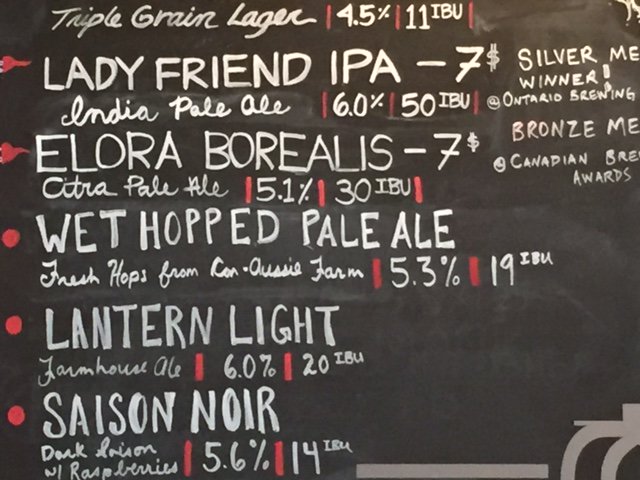 Triple Grain Lager | 4.5% | 11 IBU |
LADY FRIEND IPA - 7$
India Pale Ale | 6.0% | 50 IBU |
SILVER ME
WINNER!
@ ONTARIO BREWING
ELORA BOREALIS - 7$
Citra Pale Ale | 5.1% | 30 IBU |
BRONZE ME
@ CANADIAN BRE
AWARDS
WET HOPPED PALE ALE
Fresh Hops from Can-Aussie Farm | 5.3% | 19 IBU
LANTERN LIGHT
Farmhouse Ale | 6.0% | 20 IBU
SAISON NOIR
Dark Saison
w/ Raspberries | 5.6% | 14 IBU